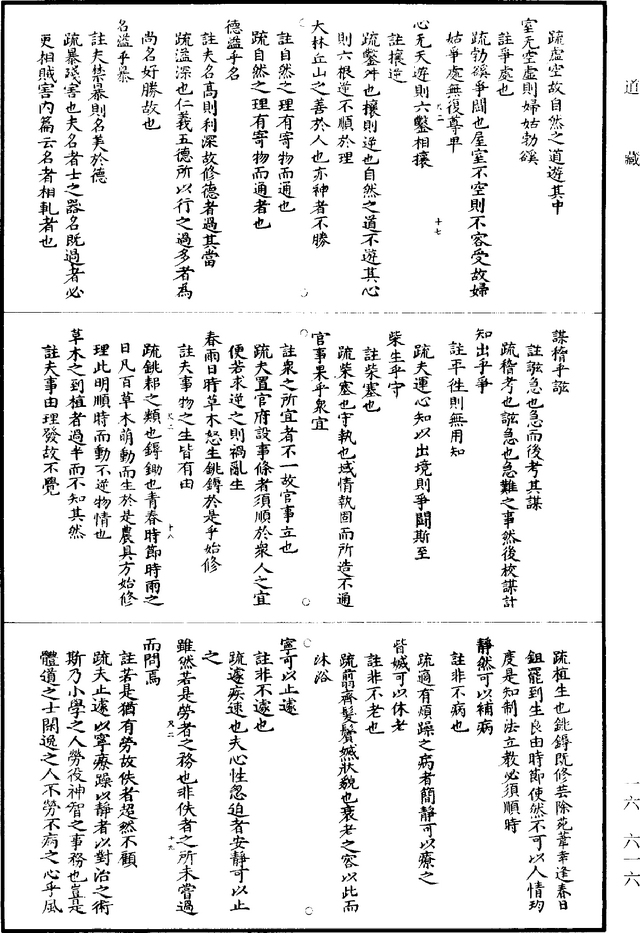 道藏
疏虛空故自然之道遊其中
室无空虛則婦姑勃谿
註爭處也
疏勃谿爭鬪也屋室不空則不容受故婦
姑爭處無復尊卑
心无天遊則六鑿相攘
註攘逆
疏鑿竅也攘則逆也自然之道不遊其心
則六根逆不順於理
大林丘山之善於人也亦神者不勝
註自然之理有寄物而通也
疏自然之理有寄物而通者也
德溢乎名
註夫名高則利深故修德者過其當
疏溢深也仁義五德所以行之過多者爲
尚名好勝故也
名溢乎暴
註夫禁暴則名美於德
疏暴殘害也夫名者士之器名既過者必
更相賊害內篇云名者相軋者也
十七
謀稽乎誸
註誸急也急而後考其謀
疏稽考也誸急也急難之事然後校謀計
知出乎爭
註平往則無用知
疏夫運心知以出境則爭鬪斯至
柴生乎守
註柴塞也
疏柴塞也守執也域情執固而所造不通
官事果乎衆宜
註衆之所宜者不一故官事立也
疏夫置官府設事條者須順於衆人之宜
便若求逆之則禍亂生
春雨日時草木怒生銚鎒於是乎始修
註夫事物之生皆有由
疏銚耜之類也鎒鋤也青春時節時雨之
日凡百草木萌動而生於是農具方始修
理此明順時而動不逆物情也
草木之到植者過半而不知其然
註夫事由理發故不覺
十八
疏植生也銚鎒既修芸除萑葦幸逢春日
鉏罷到生良由時節使然不可以人情均
度是知制法立教必須順時
靜然可以補病
註非不病也
疏適有煩躁之病者簡靜可以療之
眥媙可以休老
註非不老也
疏翦齊髮鬢媙狀貌也衰老之容以此而
沐浴
寧可以止遽
註非不遽也
疏遽疾速也夫心性忽迫者安靜可以止
之
雖然若是勞者之務也非佚者之所未嘗過
而問焉
註若是猶有勞故佚者超然不顧
疏夫止遽以寧療躁以靜者以對治之術
斯乃小學之人勞役神智之事務也豈是
體道之士閑逸之人不勞不病之心乎風
十九
一六 六一六